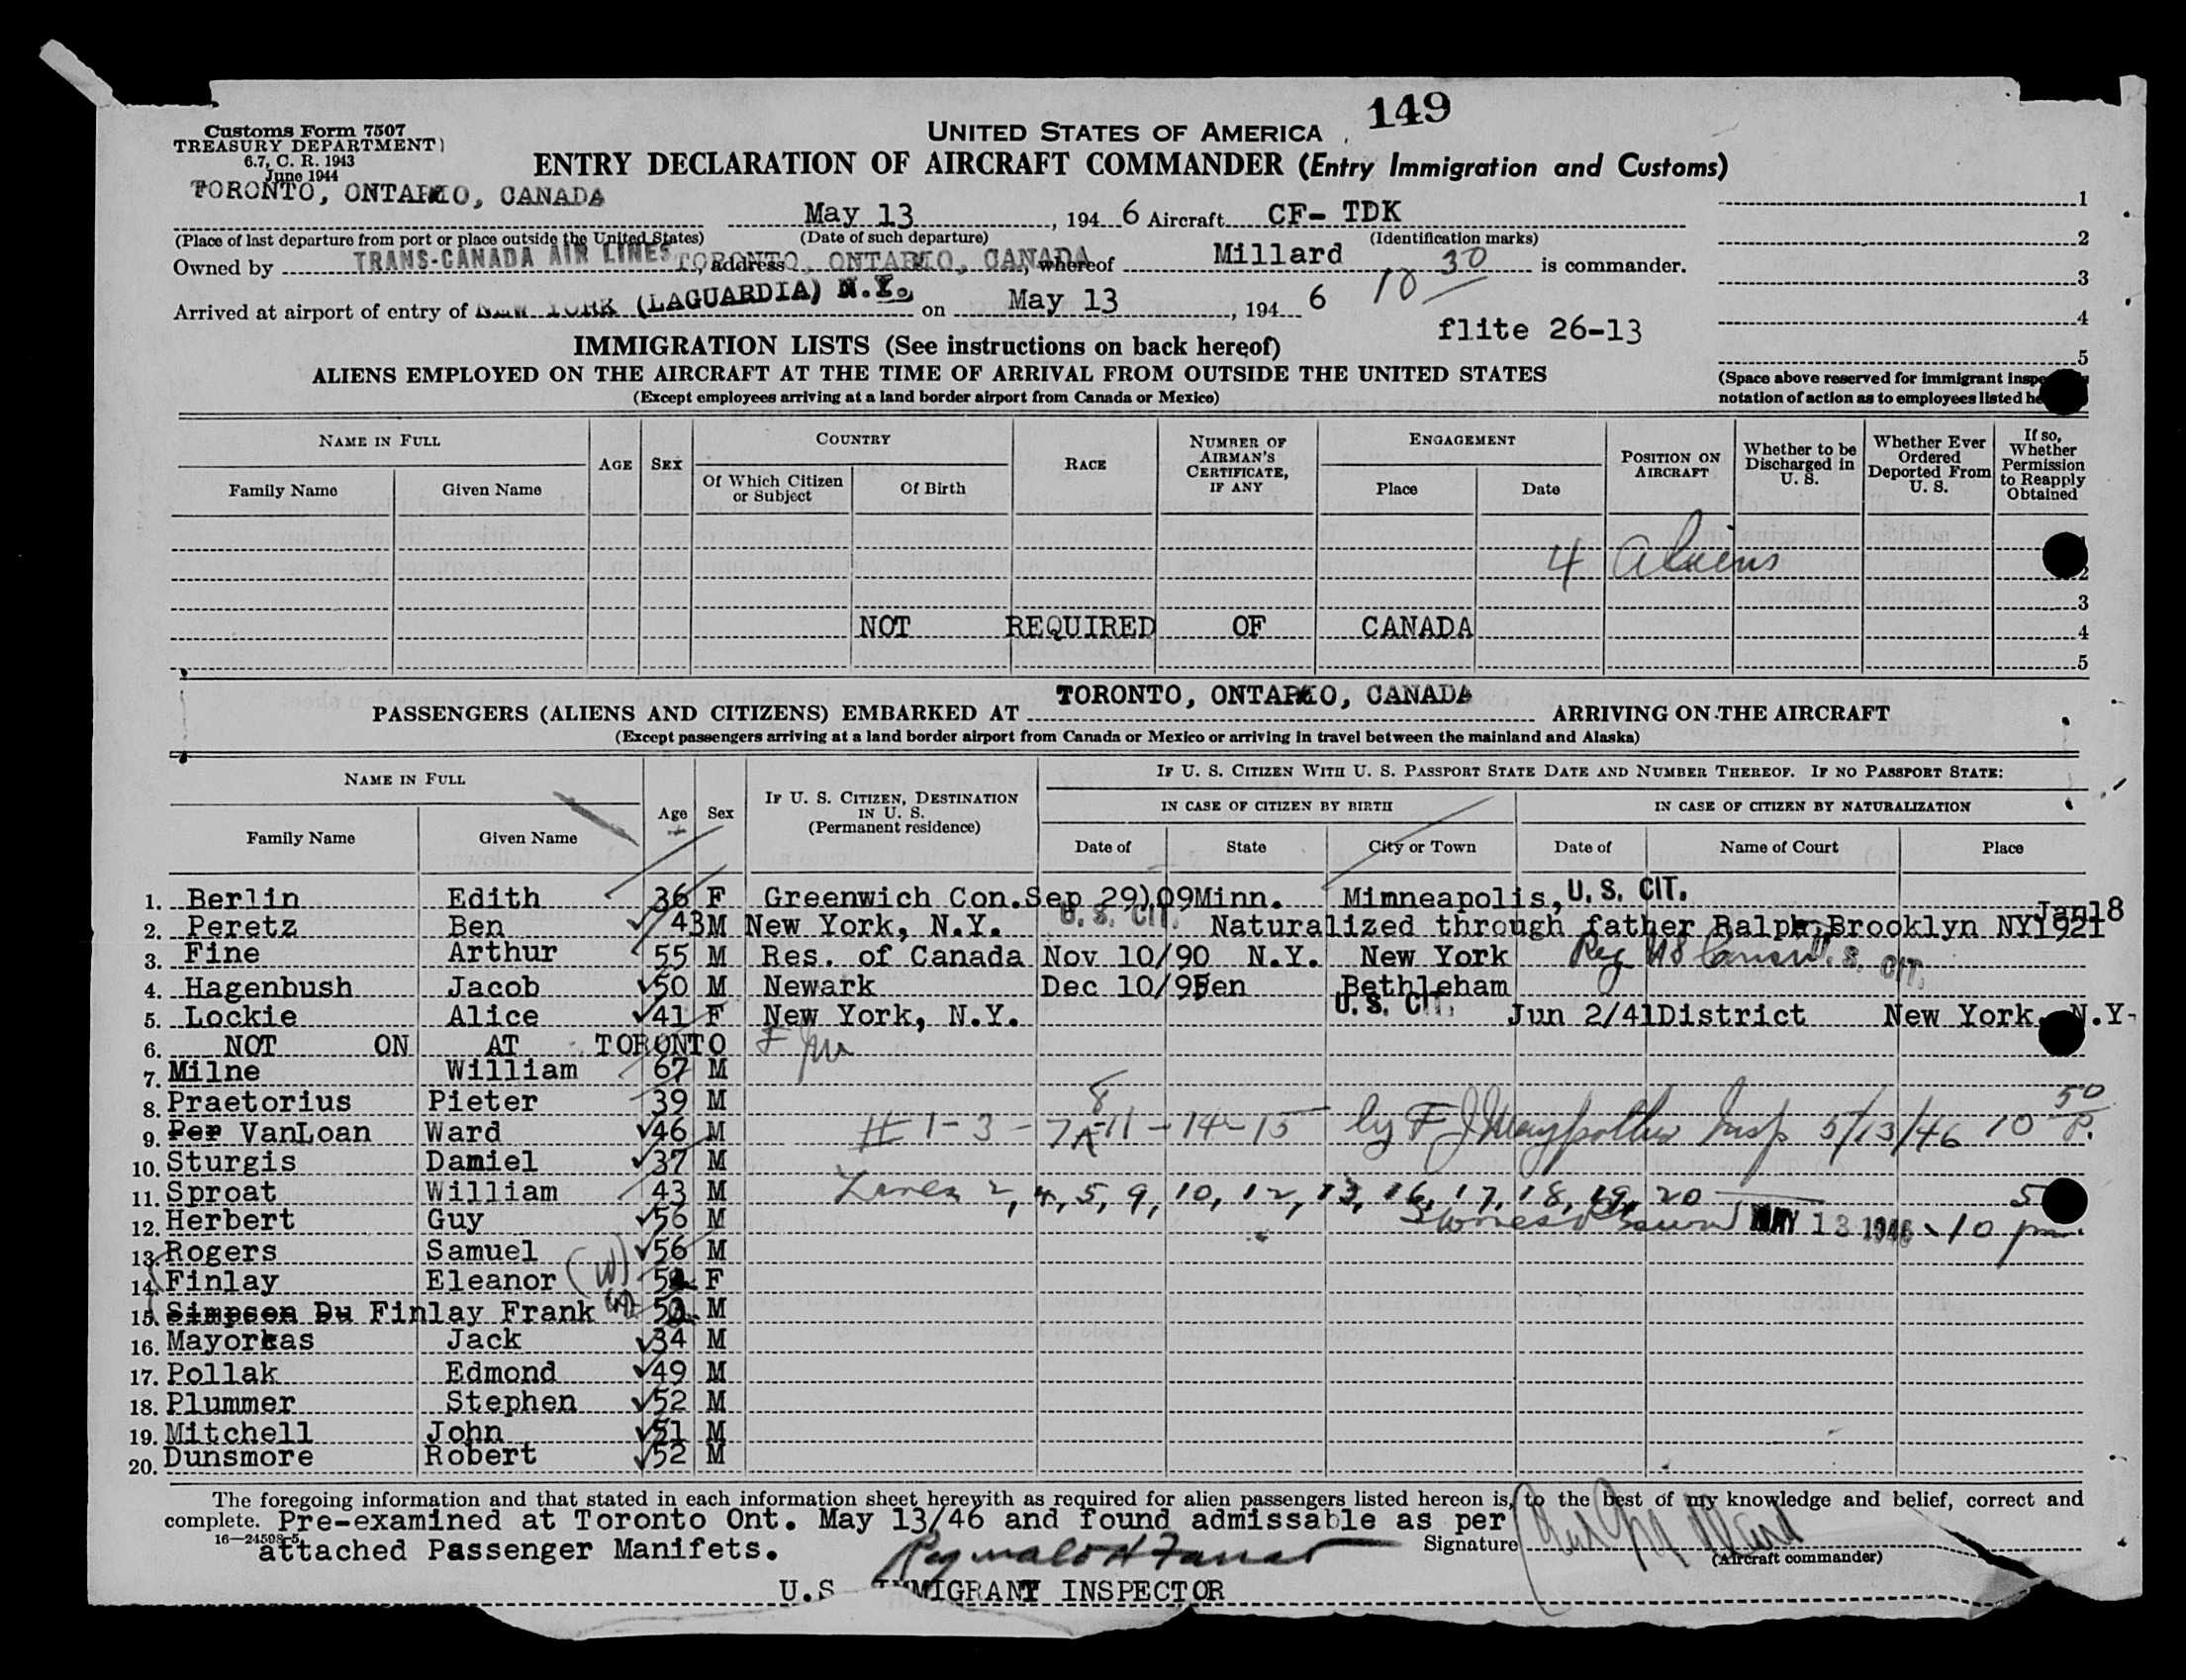 149
Customs Form 7507
TREASURY DEPARTMENT)
6.7, C. R. 1943
June 1944
UNITED STATES OF AMERICA
ENTRY DECLARATION OF AIRCRAFT COMMANDER (Entry Immigration and Customs)
TORONTO, ONTARIO, CANADA May 13, 1946 Aircraft CF- TDK
(Place of last departure from port or place outside the United States) (Date of such departure) (Identification marks)
Owned by TRANS-CANADA AIR LINES, address TORONTO, ONTARIO, CANADA, whereof Millard is commander.
10 30
Arrived at airport of entry of NEW YORK (LAGUARDIA) N.Y. on May 13, 1946
flite 26-13
1
2
3
4
5
(Space above reserved for immigrant
notation of action as to employees listed
IMMIGRATION LISTS (See instructions on back hereof)
ALIENS EMPLOYED ON THE AIRCRAFT AT THE TIME OF ARRIVAL FROM OUTSIDE THE UNITED STATES
(Except employees arriving at a land border airport from Canada or Mexico)
NAME IN FULL AGE SEX COUNTRY RACE NUMBER OF AIRMAN'S CERTIFICATE, IF ANY ENGAGEMENT POSITION ON AIRCRAFT Whether to be Discharged in U. S. Whether Ever Ordered Deported From U. S. If so, Whether Permission to Reapply Obtained
Family Name Given Name Of Which Citizen or Subject Of Birth Place Date
4 Aliens
2
3
NOT REQUIRED OF CANADA 4
5
TORONTO, ONTARIO, CANADA
PASSENGERS (ALIENS AND CITIZENS) EMBARKED AT ARRIVING ON THE AIRCRAFT
(Except passengers arriving at a land border airport from Canada or Mexico or arriving in travel between the mainland and Alaska)
NAME IN FULL Age Sex IF U. S. CITIZEN, DESTINATION IN U. S. (Permanent residence) IF U. S. CITIZEN WITH U. S. PASSPORT STATE DATE AND NUMBER THEREOF. IF NO PASSPORT STATE:
IN CASE OF CITIZEN BY BIRTH IN CASE OF CITIZEN BY NATURALIZATION
Family Name Given Name Date of State City or Town Date of Name of Court Place
1. Berlin Edith 36 F Greenwich Con. Sep 29)09 Minn. Minneapolis, U. S. CIT.
2. Peretz Ben 43 M New York, N.Y. U. S. CIT. Naturalized through father Ralph, Brooklyn NY Jan18 1921
3. Fine Arthur 55 M Res. of Canada Nov 10/90 N.Y. New York Reg U. S. CIT.
4. Hagenbush Jacob 50 M Newark Dec 10/95 Pen Bethleham
5. Lockie Alice 41 F New York, N.Y. U. S. CIT. Jun 2/41 District New York, N.Y-
6. NOT ON AT TORONTO
7. Milne William 67 M
8. Praetorius Pieter 39 M
9. Per VanLoan Ward 46 M # 1-3-7-8-11-14-15 by F J Insp 5/13/46 10 50 P.
10. Sturgis Daniel 37 M
11. Sproat William 43 M Lines 2, 4, 5, 9, 10, 12, 13, 16, 17, 18, 19, 20
12. Herbert Guy 56 M MAY 13 1946 10 pm
13. Rogers Samuel 56 M
14. Finlay Eleanor (W) F
15. Simpson Du Finlay Frank M
16. Mayorkas Jack 34 M
17. Pollak Edmond 49 M
18. Plummer Stephen 52 M
19. Mitchell John 51 M
20. Dunsmore Robert 52 M
The foregoing information and that stated in each information sheet herewith as required for alien passengers listed hereon is, to the best of my knowledge and belief, correct and
complete. Pre-examined at Toronto Ont. May 13/46 and found admissable as per
16—24598-5 attached Passenger Manifets. Signature
(Aircraft commander)
Reginald H Farrar
U.S. IMMIGRANT INSPECTOR